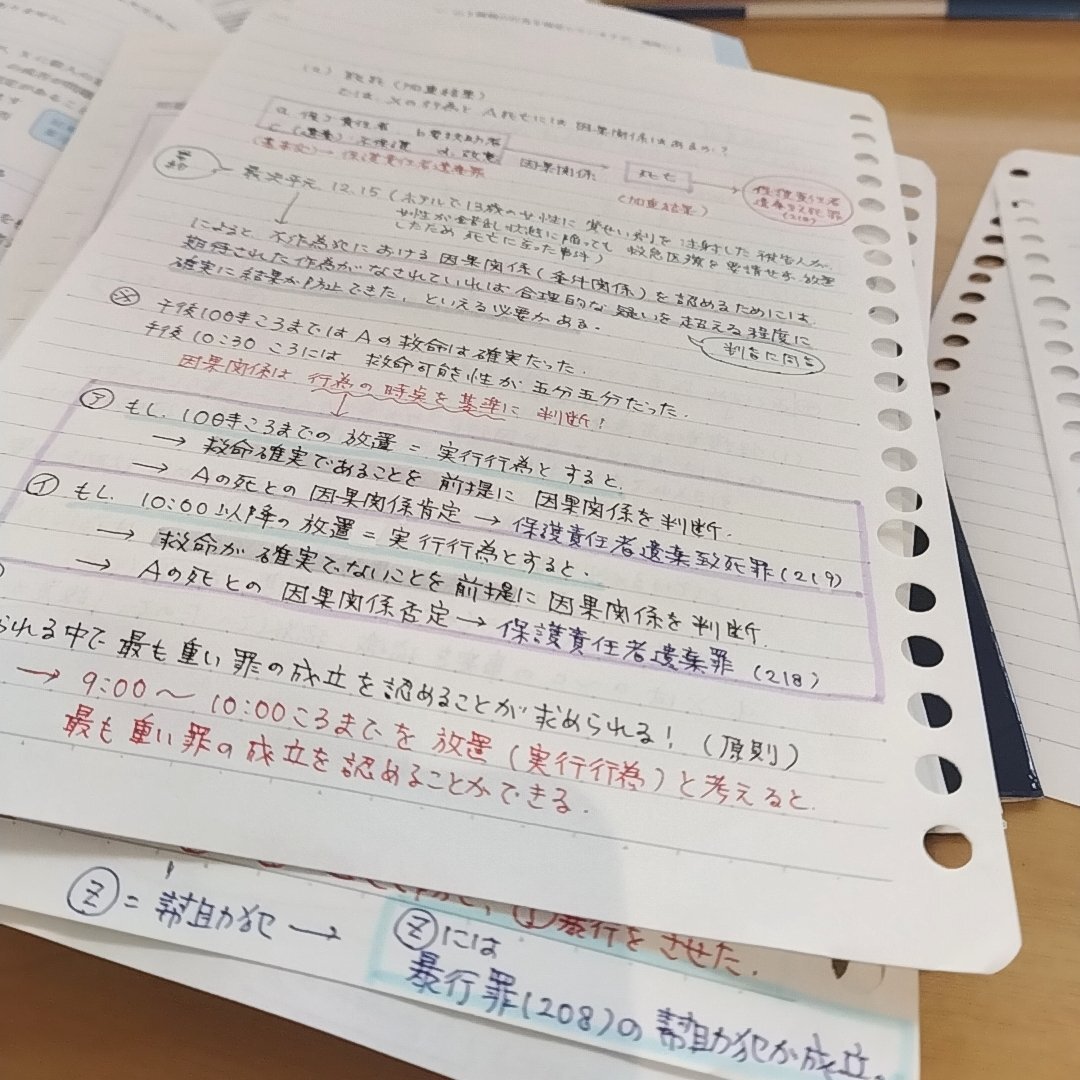 (2) 致死(加重結果)
では、Xの行為とA死亡には因果関係はあるか?
a. 保護責任者 b. 要扶助者
c. (遺棄)・不保護 d. 故意
保護責任者遺棄罪
因果関係
死亡
(加重結果)
保護責任者
遺棄致死罪
(218)
最決平元.12.15(ホテルで13歳の女性に覚せい剤を注射した被告人が、
女性が錯乱状態に陥っても救急医療を要請せず放置
したため死亡に至った事件)
によると、不作為犯における因果関係(条件関係)を認めるためには、
期待された作為がなされていれば合理的な疑いを超える程度に
確実に結果が防止できた、といえる必要がある。
判旨に同旨
※ 午後10時ころまではAの救命は確実だった。
午後10:30ころには救命可能性が五分五分だった。
因果関係は行為の時点を基準に判断!
ア もし、10時ころまでの放置=実行行為とすると、
→ 救命確実であることを前提に因果関係を判断.
→ Aの死との因果関係肯定→保護責任者遺棄致死罪(219)
イ もし、10:00以降の放置=実行行為とすると、
→ 救命が確実でないことを前提に因果関係を判断.
→ Aの死との因果関係否定→保護責任者遺棄罪(218)
られる中で最も重い罪の成立を認めることが求められる!(原則)
→ 9:00〜10:00ころまでを放置(実行行為)と考えると、
最も重い罪の成立を認めることができる.
暴行をさせた.
Z=幇助犯→Zには
暴行罪(208)の幇助犯が成立。